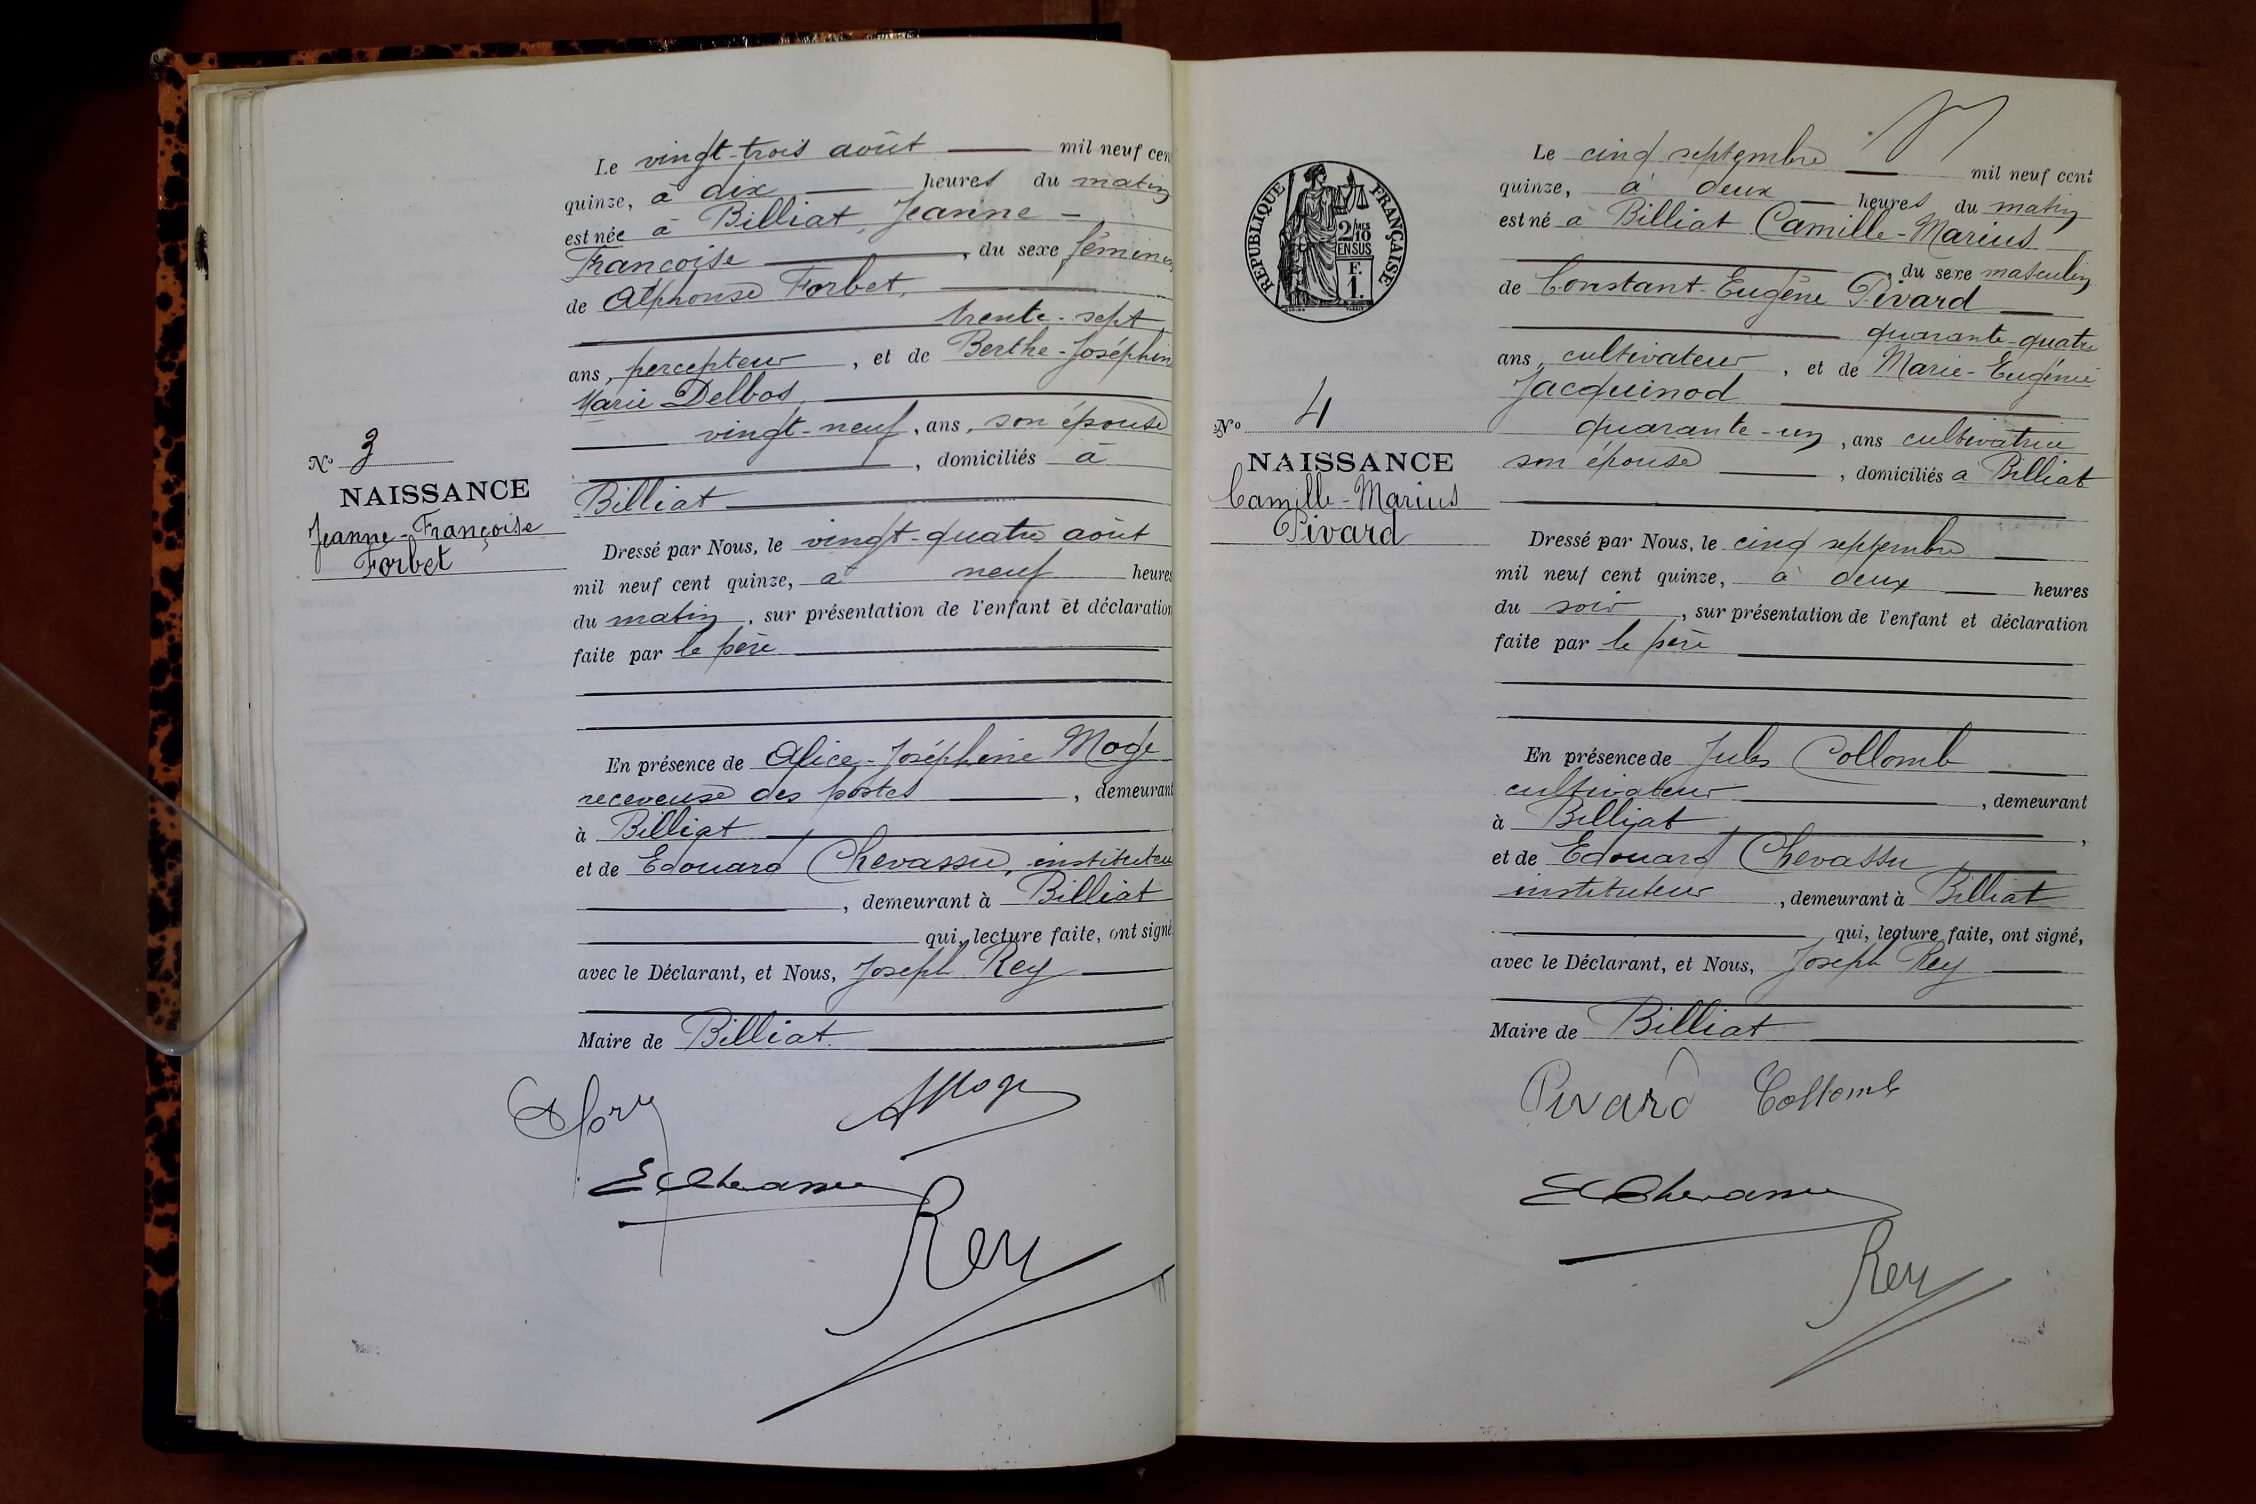 Le vingt-trois août mil neuf cent
quinze, à dix heures du matin
est née à Billiat, Jeanne-
Françoise, du sexe féminin
de Alphonse Forbet,
trente-sept
ans, percepteur, et de Berthe-Joséphin
Marie Delbos,
vingt-neuf, ans, son épouse
, domiciliés à
Billiat
N° 3
NAISSANCE
Jeanne-Françoise
Forbet
Dressé par Nous, le vingt-quatre août
mil neuf cent quinze, à neuf heures
du matin, sur présentation de l'enfant et déclaration
faite par le père
En présence de Alice-Joséphine Moge
receveuse des postes, demeurant
à Billiat
et de Edouard Chevassu, instituteu
, demeurant à Billiat
qui, lecture faite, ont signé
avec le Déclarant, et Nous, Joseph Rey
Maire de Billiat.
AMoge
EChevassu
Rey
RÉPUBLIQUE FRANÇAISE
2/10
EN SUS
F.
1.
Le cinq septembre mil neuf cent
quinze, à deux heures du matin
est né à Billiat Camille-Marius
, du sexe masculin
de Constant-Eugène Pivard
quarante-quatre
ans, cultivateur, et de Marie-Eugénie
Jacquinod
quarante-un, ans cultivatrice
son épouse, domiciliés à Billiat
N° 4
NAISSANCE
Camille-Marius
Pivard
Dressé par Nous, le cinq septembre
mil neuf cent quinze, à deux heures
du soir, sur présentation de l'enfant et déclaration
faite par le père
En présence de Jules Collomb
cultivateur, demeurant
à Billiat,
et de Edouard Chevassu
instituteur, demeurant à Billiat
qui, lecture faite, ont signé,
avec le Déclarant, et Nous, Joseph Rey
Maire de Billiat
Pivard Collomb
EChevassu
Rey